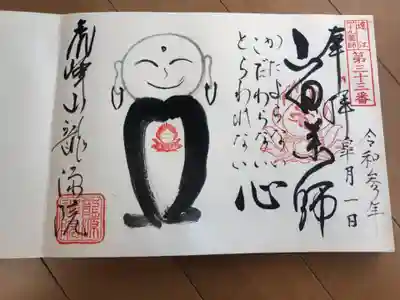 遠江
四十九薬師
第三十三番
令和参年
皐月一日
奉拝
薬師
かたよらない
こだわらない
とらわれない
心
峰山龍源院